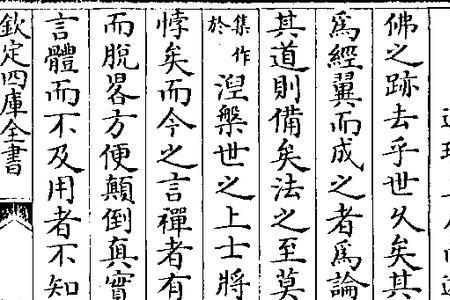 佛之跡去乎世久矣其
爲經翼而成之者爲論
其道則備矣法之至莫
集作
於
涅槃世之上士將
悖矣而今之言禪者有
而脫畧方便顛倒真實
言體而不及用者不知
欽定四庫全書